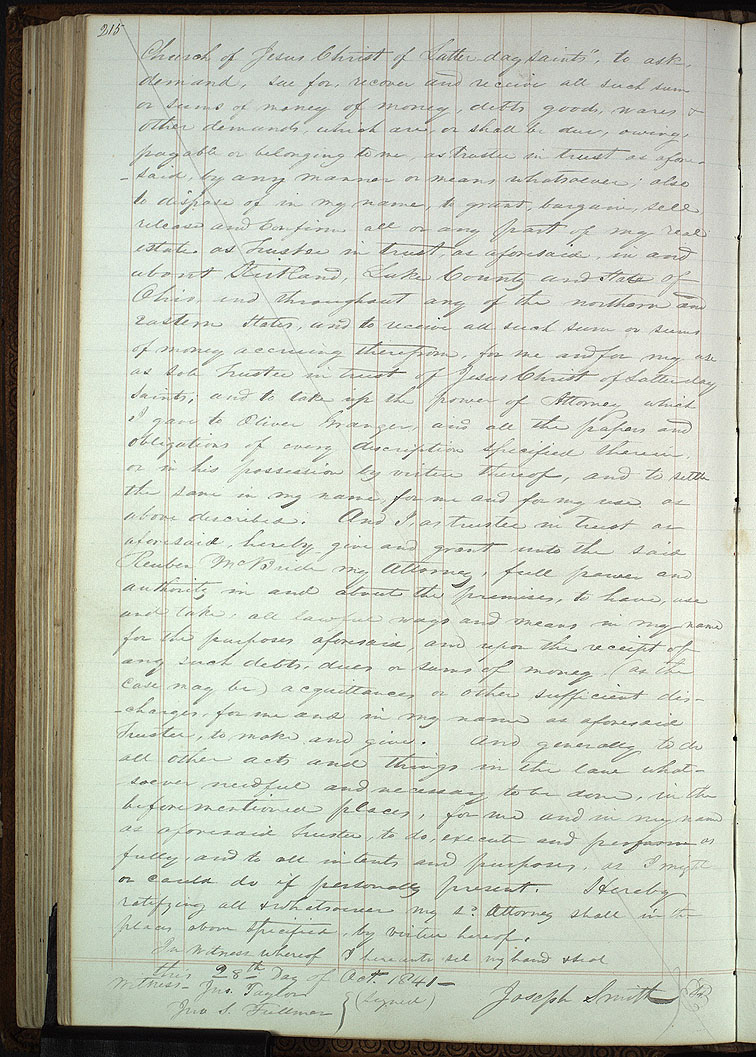 215
Church of Jesus Christ of Latter day saints", to ask,
demand, sue for, recover and receive all such sum
or sums of money of money, debts goods, wares &
other demands which are or shall be due, owing,
payable or belonging to me, as trustee in trust as afore-
-said, by any manner or means whatsoever; also
to dispose of in my name, to grant, bargain, sell
release and Confirm all or any part of my real
estate as Trustee in trust, as aforesaid, in and
about Kirtland, Lake County and State of
Ohio, and throughout any of the northern and
eastern States, and to receive all such sum or sums
of money accruing therefrom, for me and for my use
as sole Trustee in trust of Jesus Christ of Latter day
saints; and to take up the power of Attorney which
I gave to Oliver Granger, and all the papers and
obligations of every description specified therein,
or in his possession by virtue thereof, and to settle
the same in my name, for me and for my use as
above described. And I, as trustee in trust as
aforesaid, hereby give and grant unto the said
Reuben McBride my Attorney, full power and
authority in and about the premises, to have, use
and take, all lawful ways and means in my name
for the purposes aforesaid, and upon the receipt of
any such debts, dues or sums of money, (as the
case may be) acquittances or other sufficient dis-
-charges, for me and in my name as aforesaid
Trustee, to make and give. And generally to do
all other acts and things in the law what-
soever needful and necessary to be done, in the
beforementioned places, for me and in my name
as aforesaid trustee, to do, execute and perform as
fully, and to all intents and purposes, as I might
or could do if personally present. Hereby
ratifying all & whatsoever my sd. Attorney shall in the
places above specified, by virtue hereof.
In witness whereof I hereunto set my hand & seal
this 28th Day of Oct. 1841—
Witness— Jno. Taylor
Jno S. Fullmer } (signed) Joseph Smith